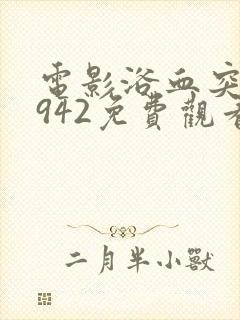 電影浴血突
942免費觀看
二月半小獸